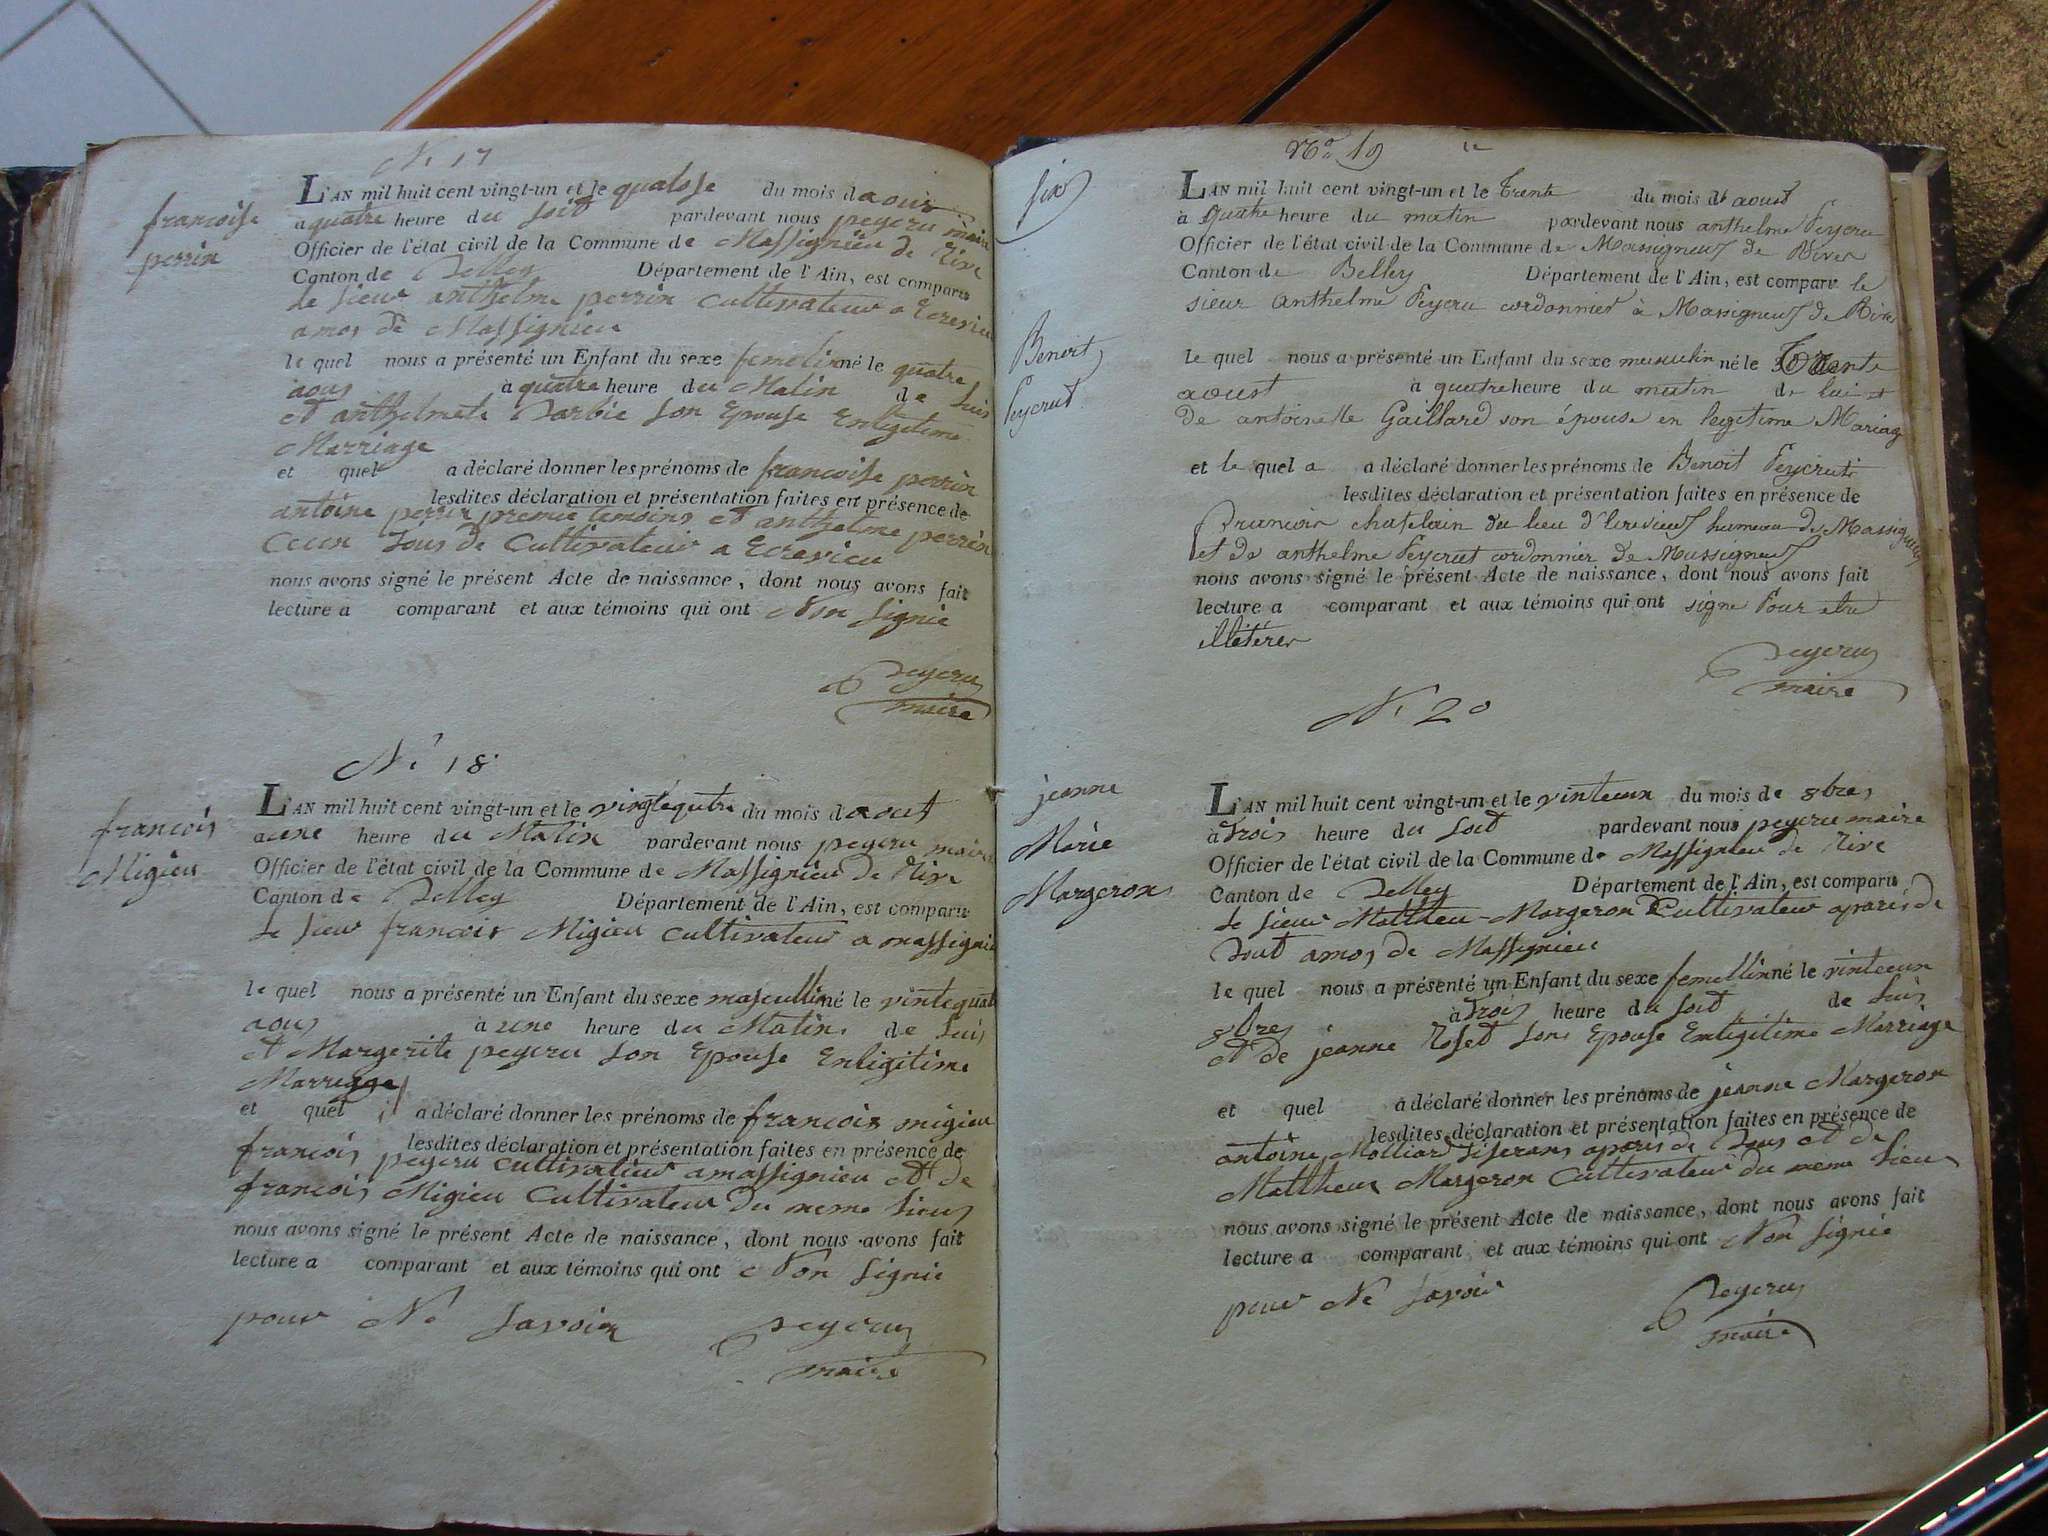 N. 17
francoise
perrin
L'AN mil huit cent vingt-un et le quatose du mois d aous
a quatre heure du soit pardevant nous peyeru maire
Officier de l'état civil de la Commune de Massignieu de Rive
Canton de Belley Département de l'Ain, est comparu
Le sieur anthelme perrin Cultivateur a Ecrevieu
amos de Massignieu
le quel nous a présenté un Enfant du sexe femelin né le quatre
aous à quatre heure du Matin de Luis
et anthelmete Barbie son Epouse Enligitime
Marriage
et quel a déclaré donner les prénoms de francoise perrin
lesdites déclaration et présentation faites en présence de
antoine perrin premie temoins et anthelme perrin
tous de Cultivateur a Ecrevieu
nous avons signé le présent Acte de naissance, dont nous avons fait
lecture a comparant et aux témoins qui ont Non signie
peyeru
maire
N. 18
francois
Migieu
L'AN mil huit cent vingt-un et le vingtequtre du mois d aout
a une heure du Matin pardevant nous peyeru maire
Officier de l'état civil de la Commune de Massignieu de Rive
Canton de Belley Département de l'Ain, est comparu
Le sieur francois Migieu Cultivateur a massignieu
le quel nous a présenté un Enfant du sexe mascullin né le vintequat
aous à une heure du Matin de Luis
et Margerite peyeru son Epouse Enligitime
Marriage
et quel a déclaré donner les prénoms de francois migieu
lesdites déclaration et présentation faites en présence de
francois peyeru cultivateur a massignieu et de
francois Migieu Cultivateur du meme Lieu
nous avons signé le présent Acte de naissance, dont nous avons fait
lecture a comparant et aux témoins qui ont Non signie
pour Ne savoir
peyeru
maire
six
No. 19
Benoit
Peycrut
L'AN mil huit cent vingt-un et le Trente du mois d' aoust
à quatre heure du matin pardevant nous anthelme Peycru
Officier de l'état civil de la Commune de Massigneuf de Rives
Canton de Belley Département de l'Ain, est comparu le
sieur Anthelme Peycru cordonnier à Massigneuf de Rives
le quel nous a présenté un Enfant du sexe masculin né le Trente
aoust à quatre heure du matin de lui et
de antoinette Gaillard son épouse en legitime Mariag
et le quel a a déclaré donner les prénoms de Benoit Peycrut
lesdites déclaration et présentation faites en présence de
Francois chatelain du lieu d'Ecrevieuf hameau de Massigneuf
et de anthelme Peycrut cordonnier de Massigneuf
nous avons signé le présent Acte de naissance, dont nous avons fait
lecture a comparant et aux témoins qui ont signe Pour etre
illitérer
peyeru
maire
N. 20
jeanne
Marie
Margeron
L'AN mil huit cent vingt-un et le vinteun du mois de 8bres
à trois heure du soit pardevant nous peyeru maire
Officier de l'état civil de la Commune de Massignieu de Rive
Canton de Belley Département de l'Ain, est comparu
Le sieur Mattheu Margeron Cultivateur de
amos de Massignieu
le quel nous a présenté un Enfant du sexe femellin né le vinteun
8bres à trois heure du soit de Luis
et de jeanne Roset sons Epouse Enligitime Marriage
et quel a déclaré donner les prénoms de jeanne Margeron
lesdites déclaration et présentation faites en présence de
antoine Molliard tiserans et de
Mattheu Margeron Cultivateur du meme Lieu
nous avons signé le présent Acte de naissance, dont nous avons fait
lecture a comparant et aux témoins qui ont Non signie
pour Ne savoir
peyeru
maire